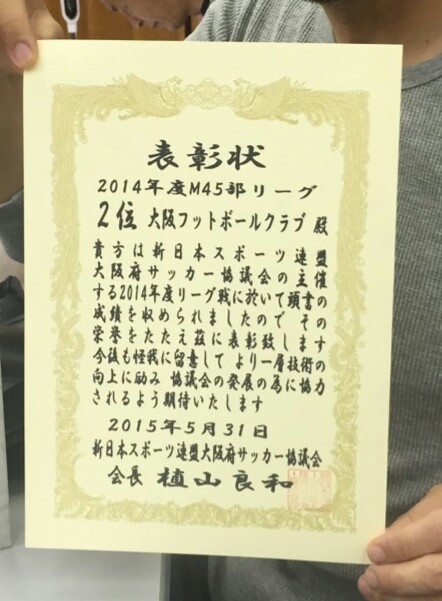 表彰状
2014年度M45部リーグ
2位 大阪フットボールクラブ 殿
貴方は新日本スポーツ連盟
大阪府サッカー協議会の主催
する2014年度リーグ戦に於いて頭書の
成績を収められましたので その
栄誉をたたえ茲に表彰致します
今後も怪我に留意して より一層技術の
向上に励み 協議会の発展の為に協力
されるよう期待いたします
2015年5月31日
新日本スポーツ連盟大阪府サッカー協議会
会長 植山良和